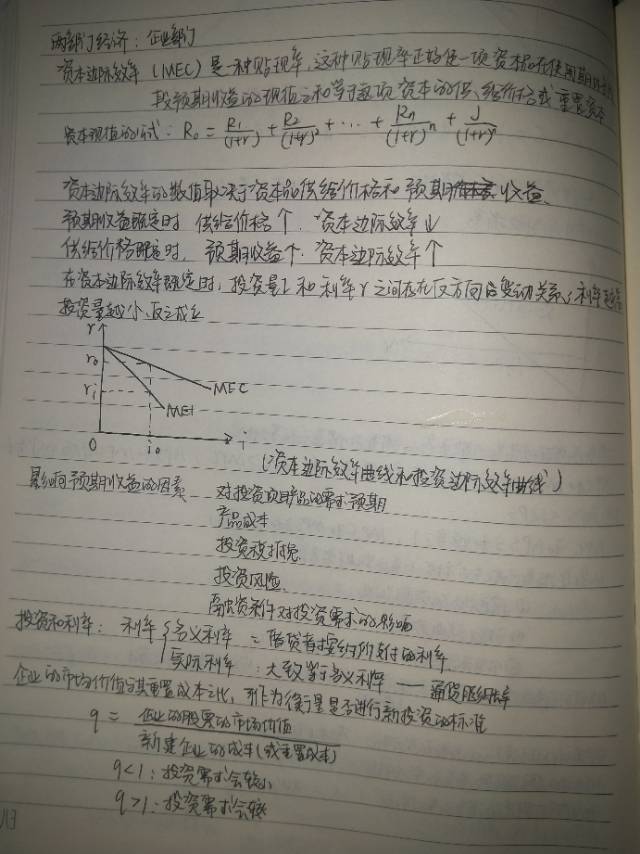 两部门经济：企业部门
资本边际效率（MEC）是一种贴现率，这种贴现率正好使一项资本品在使用期内各
期预期收益的现值之和等于这项资本的供给价格或重置资本
资本现值的公式：R₀ = R₁/(1+r) + R₂/(1+r)² + ... + Rn/(1+r)ⁿ + J/(1+r)ⁿ
资本边际效率的数值取决于资本品供给价格和预期收益
预期收益既定时 供给价格↑. 资本边际效率↓
供给价格既定时, 预期收益↑. 资本边际效率↑
在资本边际效率既定时，投资量I和利率r之间存在反方向的变动关系；利率越高
投资量越小,反之成立
r
r₀
r₁
MEC
MEI
0
i₀
i
（资本边际效率曲线和投资边际效率曲线）
影响预期收益的因素 对投资项目产品的需求预期
产品成本
投资税抵免
投资风险
融资条件对投资需求的影响
投资和利率： 利率 { 名义利率 = 借贷者按约所支付的利率
实际利率：大致等于名义利率 — 通货膨胀率
企业的市场价值与其重置成本之比，可作为衡量是否进行新投资的标准
q = 企业的股票的市场价值
新建企业的成本(或重置成本)
q<1：投资需求会较小
q>1：投资需求会